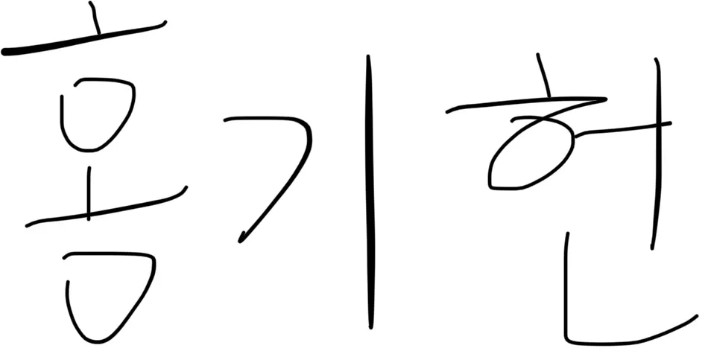 홍기헌